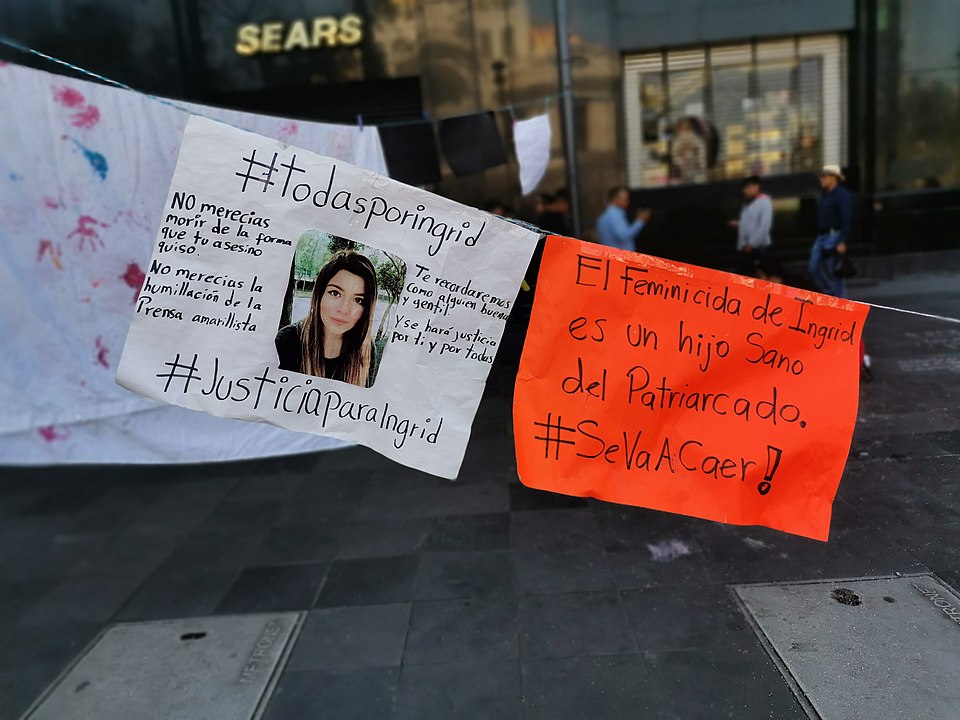 SEARS
#TodasporIngrid
NO merecias
morir de la forma
que tu asesino
quiso.
No merecias la
humillación de la
Prensa amarillista
Te recordaremos
como alguien buena
y gentil
Y se hará justicia
por ti y por todas
#JusticiaparaIngrid
El Feminicida de Ingrid
es un hijo Sano
del Patriarcado.
#SeVaACaer!